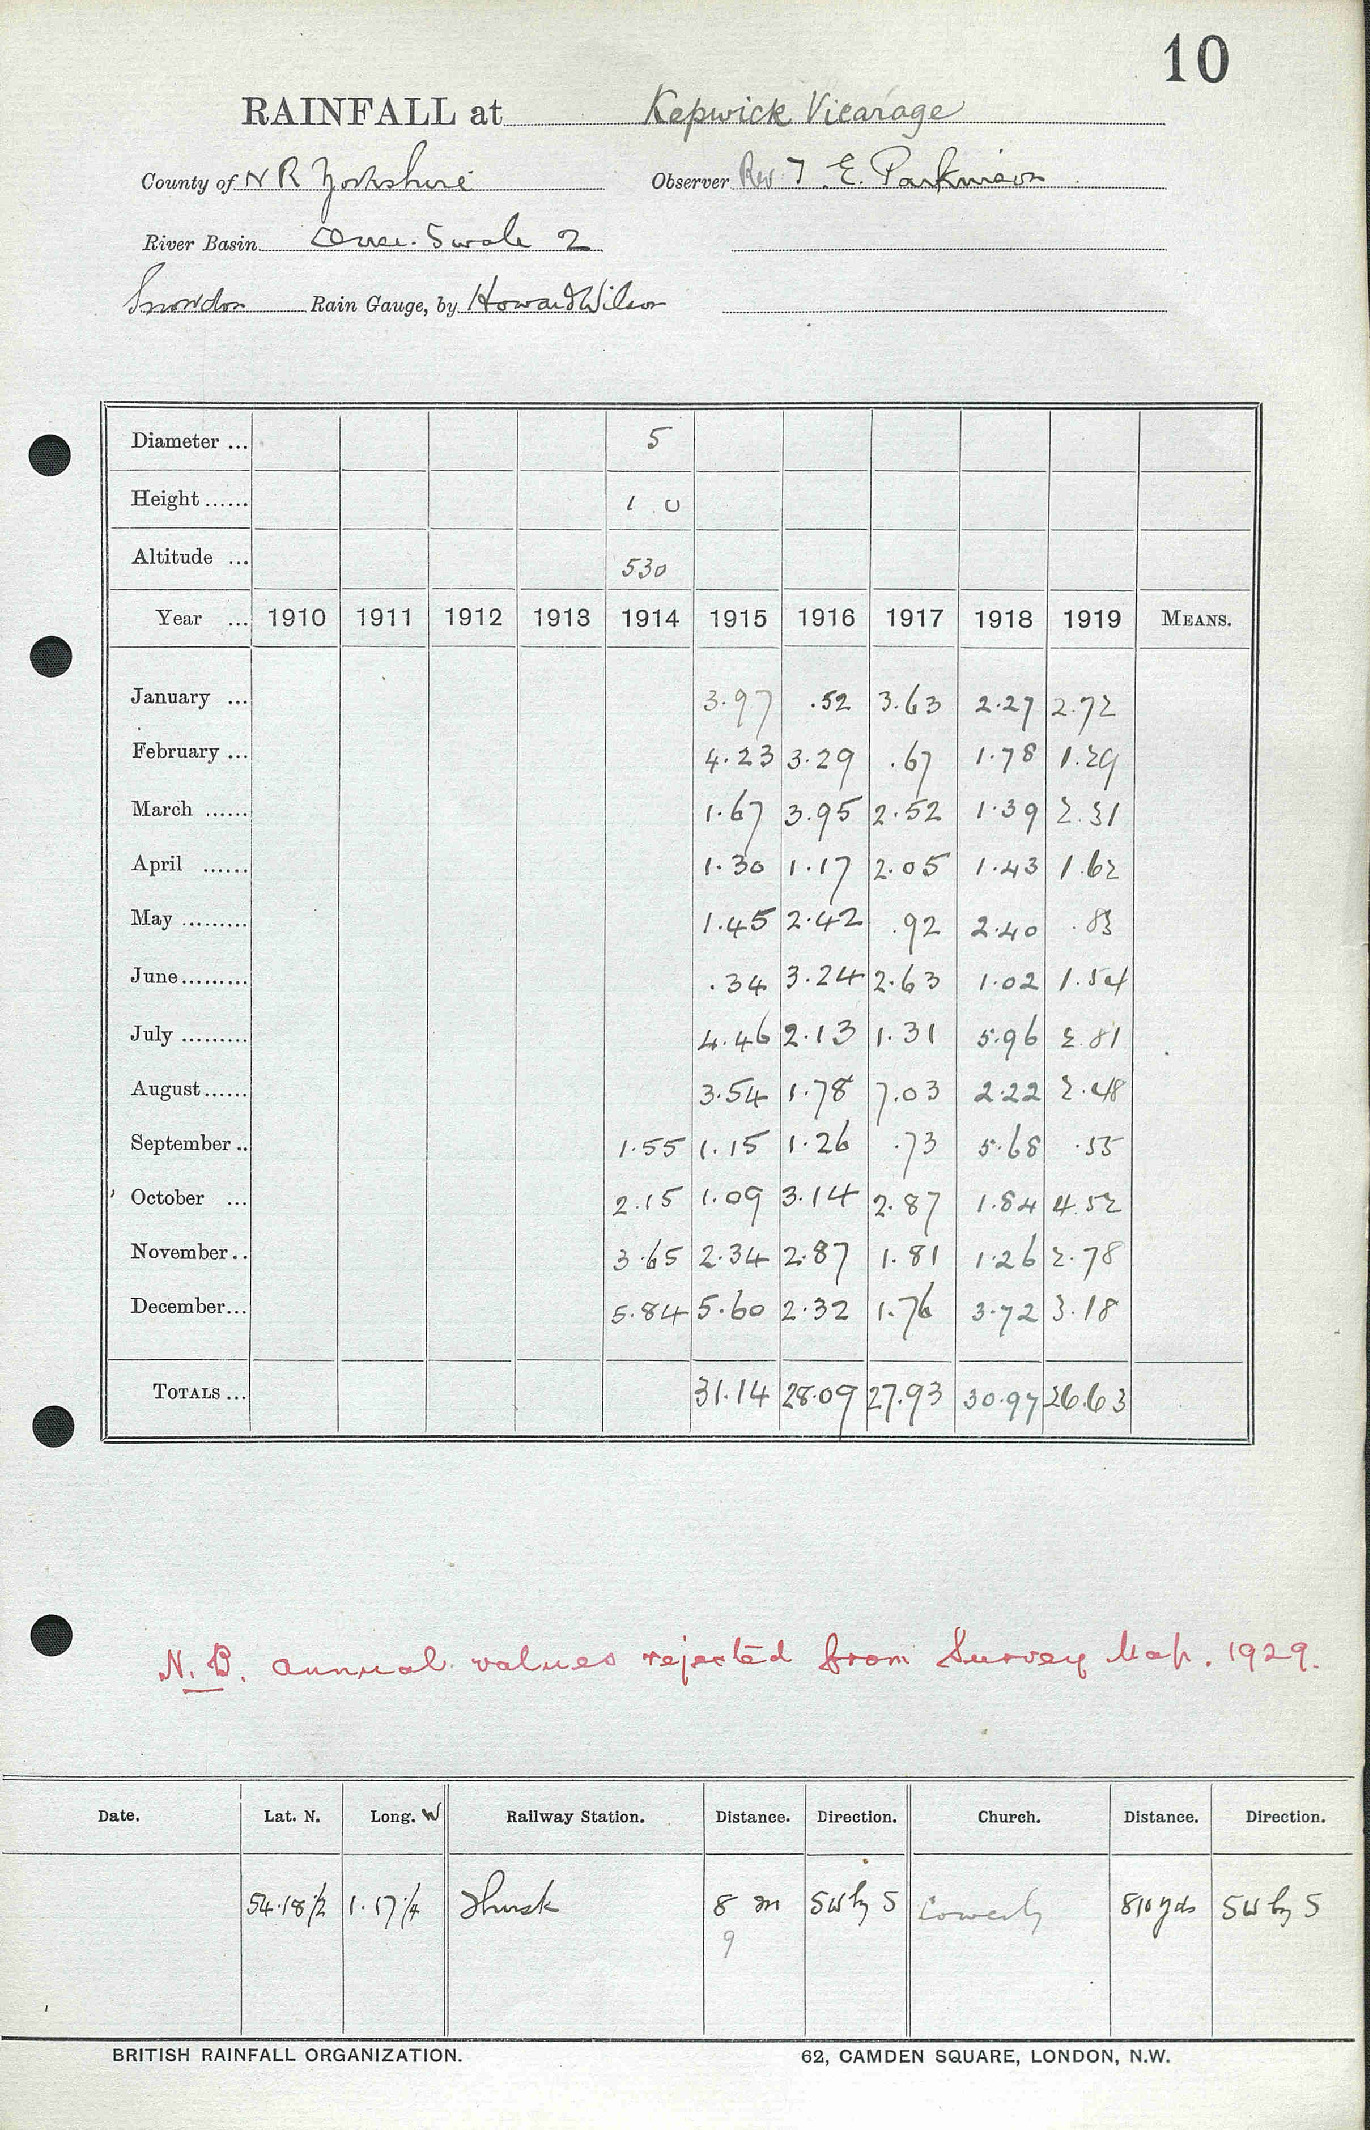 10
RAINFALL at Kepwick Vicarage
County of N R Yorkshire Observer Rev. T. E. Parkinson
River Basin Ouse. Swale 2
Snowdon Rain Gauge, by Howard Wilson
Diameter ... 5
Height ...... 1 . 0
Altitude ... 530
Year ... 1910 1911 1912 1913 1914 1915 1916 1917 1918 1919 MEANS.
January ... 3.97 .52 3.63 2.27 2.72
February ... 4.23 3.29 .67 1.78 1.29
March ...... 1.67 3.95 2.52 1.39 2.31
April ...... 1.30 1.17 2.05 1.43 1.62
May ......... 1.45 2.42 .92 2.40 .83
June......... .34 3.24 2.63 1.02 1.54
July ......... 4.46 2.13 1.31 5.96 2.81
August...... 3.54 1.78 7.03 2.22 2.48
September .. 1.55 1.15 1.26 .73 5.68 .55
October ... 2.15 1.09 3.14 2.87 1.84 4.52
November.. 3.65 2.34 2.87 1.81 1.26 2.78
December... 5.84 5.60 2.32 1.76 3.72 3.18
TOTALS ... 31.14 28.09 27.93 30.97 26.63
N.B. annual values rejected from Survey Map. 1929.
Date. Lat. N. Long. W Railway Station. Distance. Direction. Church. Distance. Direction.
54.18½ 1.17¼ Thirsk 8 m SW by S Cowesby 810 yds SW by S
9
BRITISH RAINFALL ORGANIZATION. 62, CAMDEN SQUARE, LONDON, N.W.